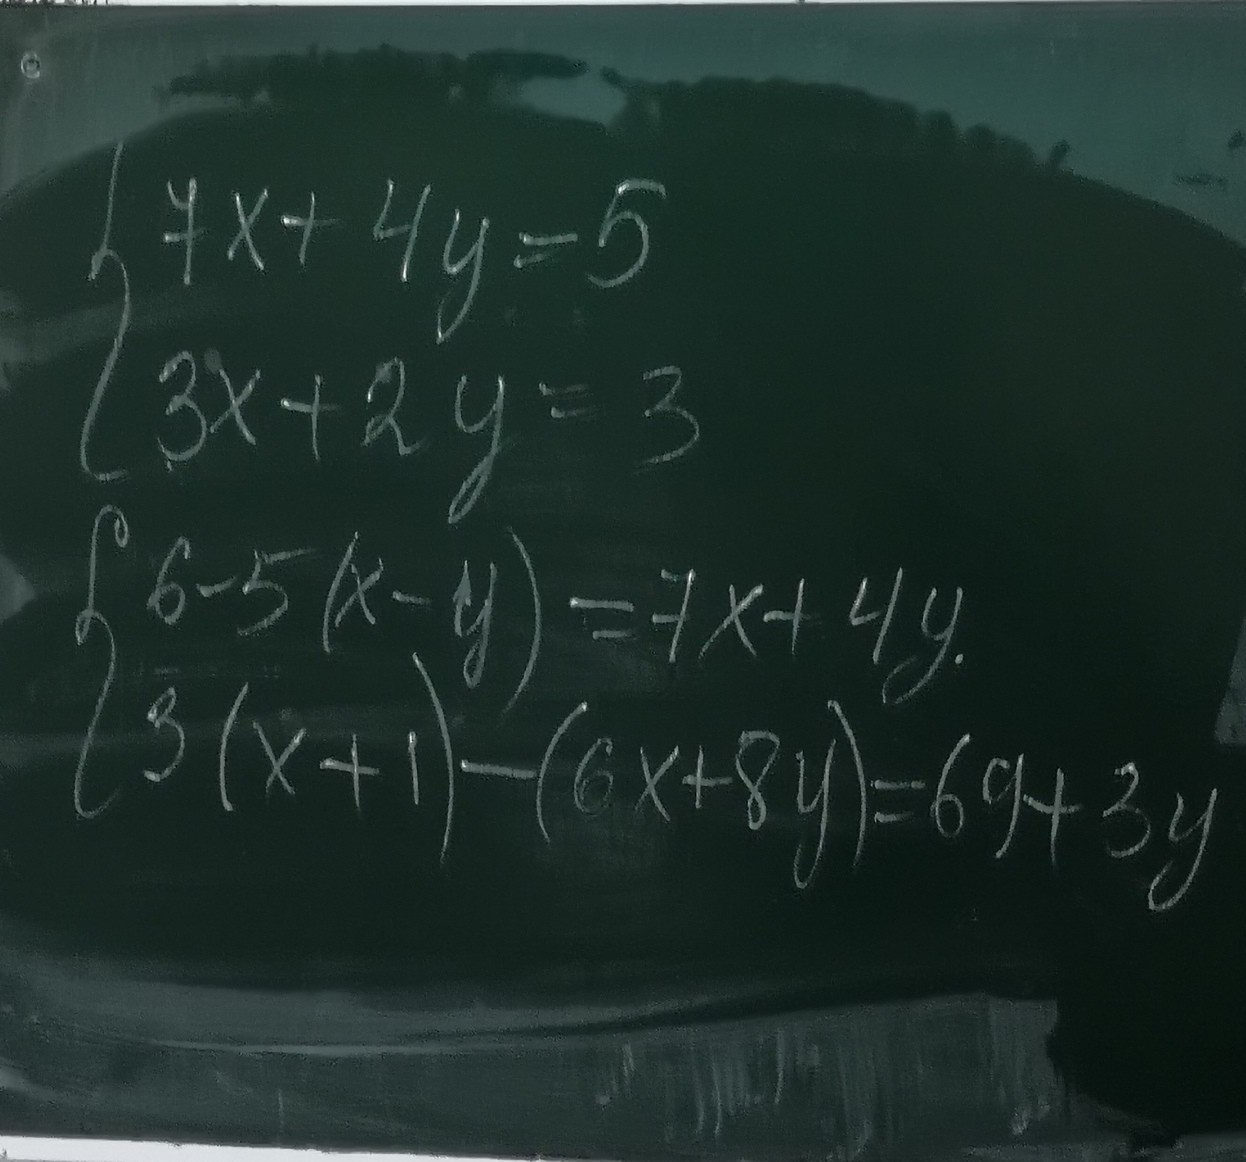 7x+4y=5
3x+2y=3
6-5(x-y)=7x+4y.
3(x+1)-(6x+8y)=69+3y